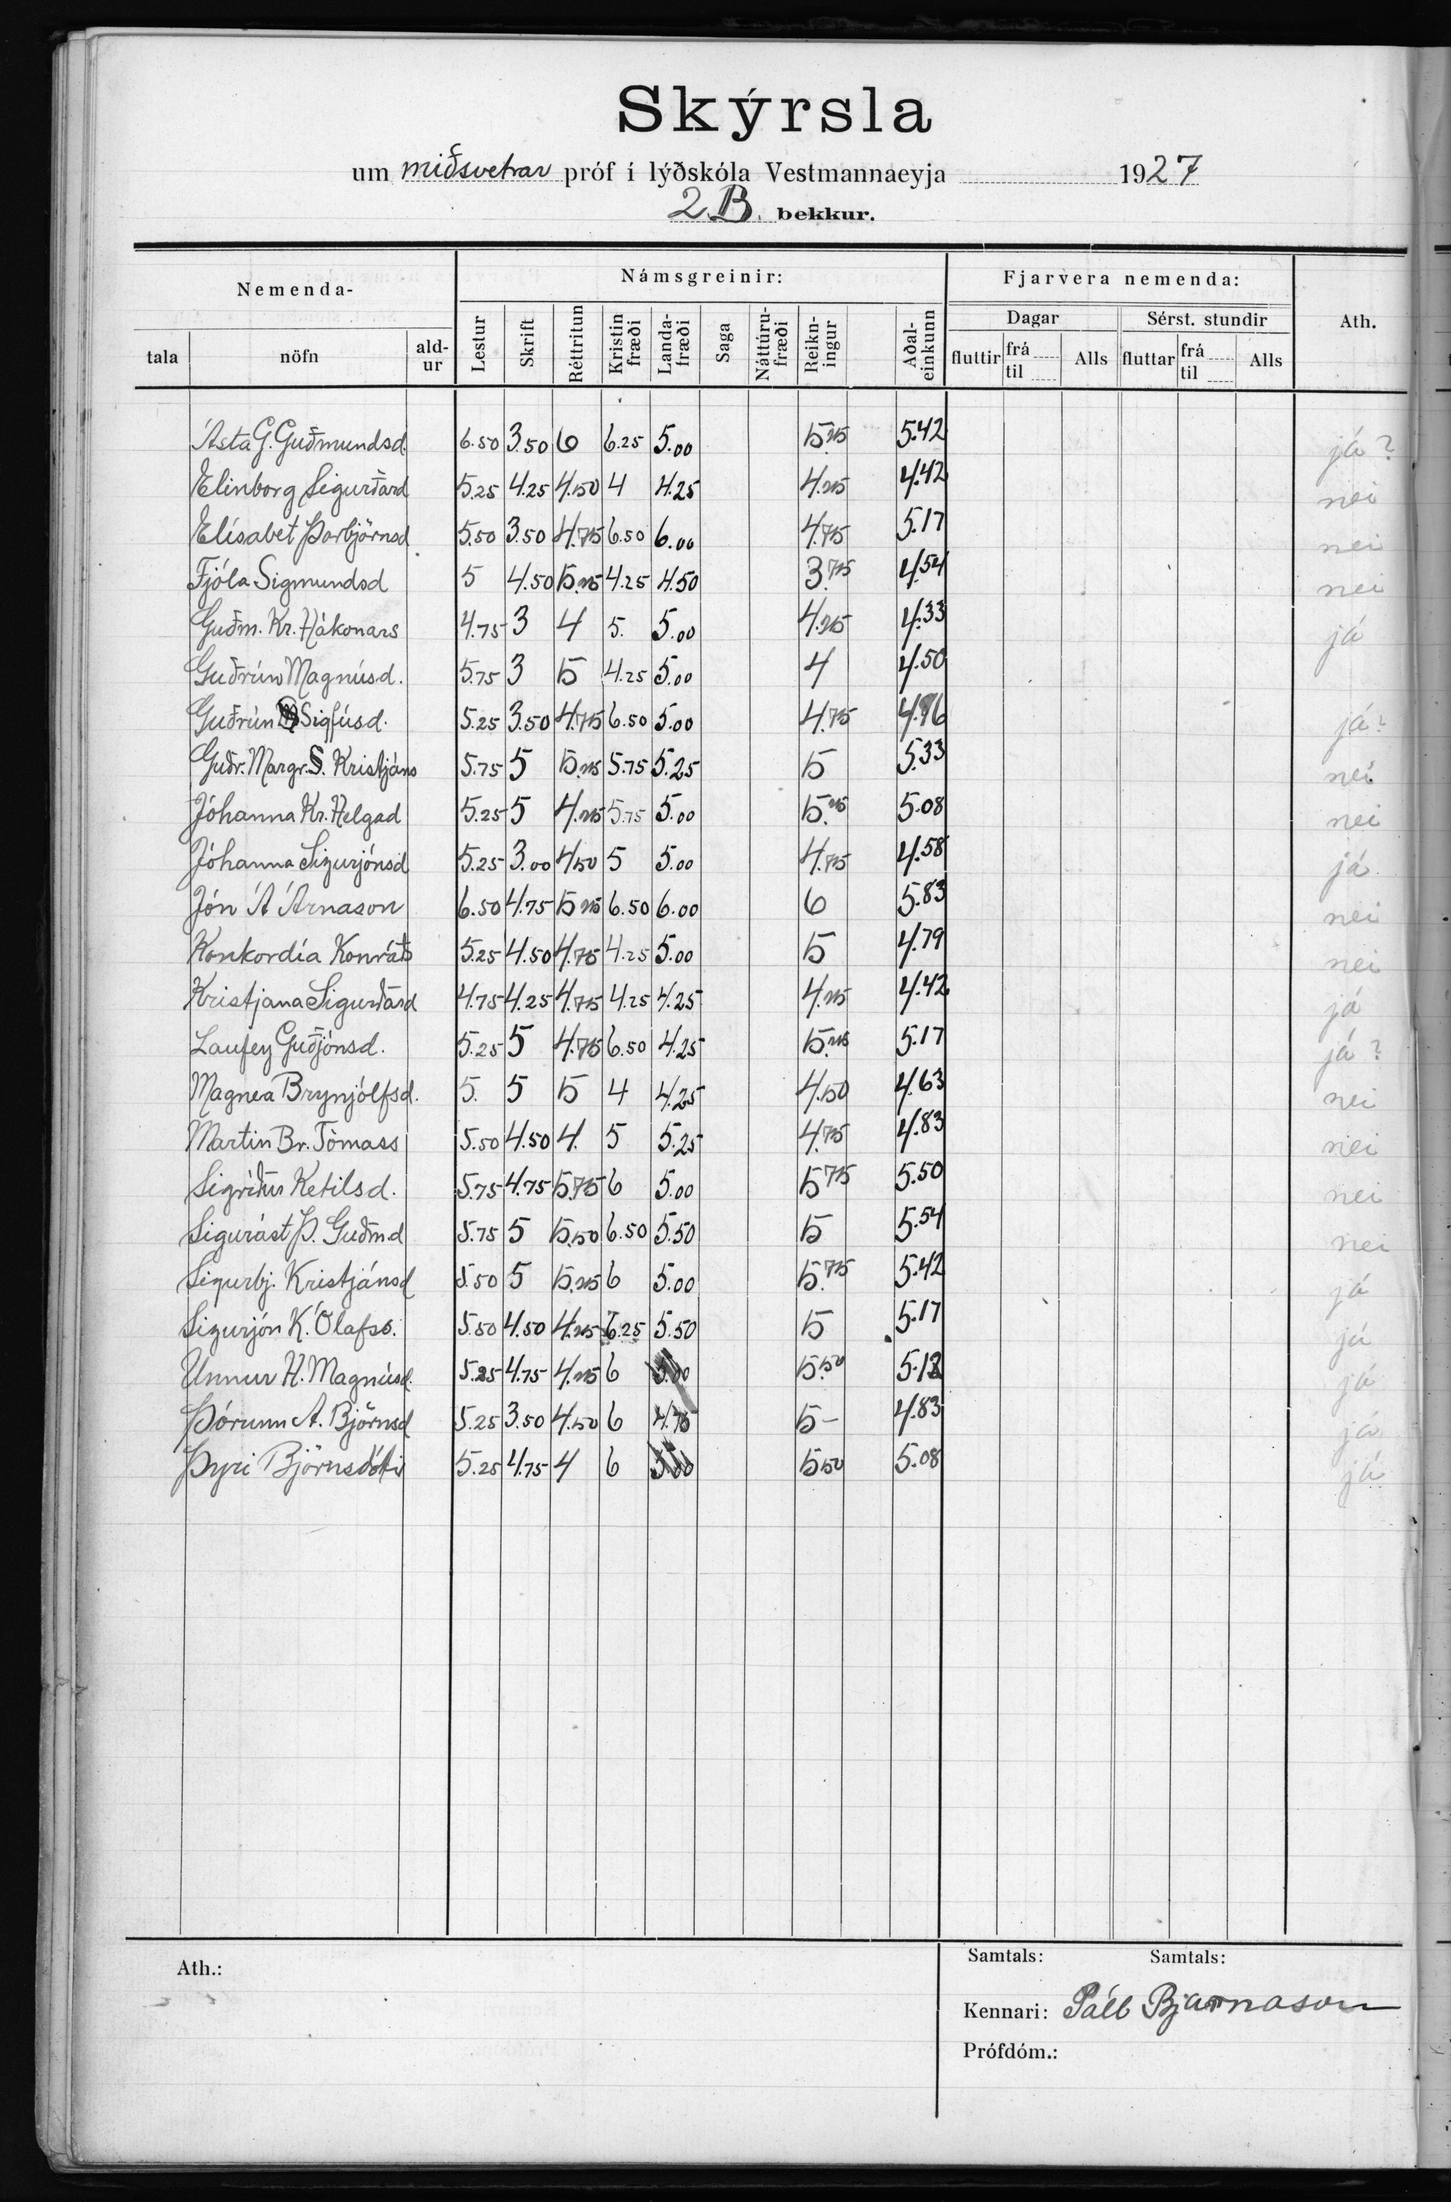 Skýrsla
um miðsvetrar próf í lýðskóla Vestmannaeyja 1927
2.B. bekkur.
Nemenda- Námsgreinir: Fjarvera nemenda: Ath.
Dagar Sérst. stundir
tala nöfn ald-ur Lestur Skrift Réttritun Kristin fræði Landa-fræði Saga Náttúru-fræði Reikn-ingur Aðal-einkunn fluttir frá til Alls fluttar frá til Alls
Ásta G. Guðmundsd. 6.50 3.50 6 6.25 5.00 5.25 5.42 já?
Elinborg Sigurðard 5.25 4.25 4.50 4 4.25 4.25 4.42 nei
Elísabet Þorbjörnsd 5.50 3.50 4.75 6.50 6.00 4.75 5.17 nei
Fjóla Sigmundsd 5 4.50 5.25 4.25 4.50 3.75 4.54 nei
Guðm. Kr. Hákonars 4.75 3 4 5. 5.00 4.25 4.33 já
Guðrún Magnúsd. 5.75 3 5 4.25 5.00 4 4.50
Guðrún Sigfúsd. 5.25 3.50 4.75 6.50 5.00 4.75 4.96 já?
Guðr. Margr. S. Kristjáns 5.75 5 5.25 5.75 5.25 5 5.33 nei
Jóhanna Kr. Helgad 5.25 5 4.25 5.75 5.00 5.25 5.08 nei
Jóhanna Sigurjónsd 5.25 3.00 4.50 5 5.00 4.75 4.58 já
Jón Á Árnason 6.50 4.75 5.25 6.50 6.00 6 5.83 nei
Konkordía Konráðs 5.25 4.50 4.75 4.25 5.00 5 4.79 nei
Kristjana Sigurðard 4.75 4.25 4.75 4.25 4.25 4.25 4.42 já
Laufey Guðjónsd. 5.25 5 4.75 6.50 4.25 5.25 5.17 já?
Magnea Brynjólfsd. 5. 5 5 4 4.25 4.50 4.63 nei
Martin Br. Tómass 5.50 4.50 4. 5 5.25 4.75 4.83 nei
Sigríður Ketilsd. 5.75 4.75 5.75 6 5.00 5.75 5.50 nei
Sigurást Þ. Guðmd 5.75 5 5.50 6.50 5.50 5 5.54 nei
Sigurbj. Kristjánsd 5.50 5 5.25 6 5.00 5.75 5.42 já
Sigurjón K. Ólafss. 5.50 4.50 4.25 6.25 5.50 5 5.17 já
Unnur H. Magnúsd. 5.25 4.75 4.25 6 5.00 5.50 5.12 já
Þórunn A. Björnsd 5.25 3.50 4.50 6 4.75 5- 4.83 já
Þyri Björnsdótti 5.25 4.75 4 6 5.00 5.50 5.08 já
Ath.: Samtals: Samtals:
Kennari: Páll Bjarnason
Prófdóm.: